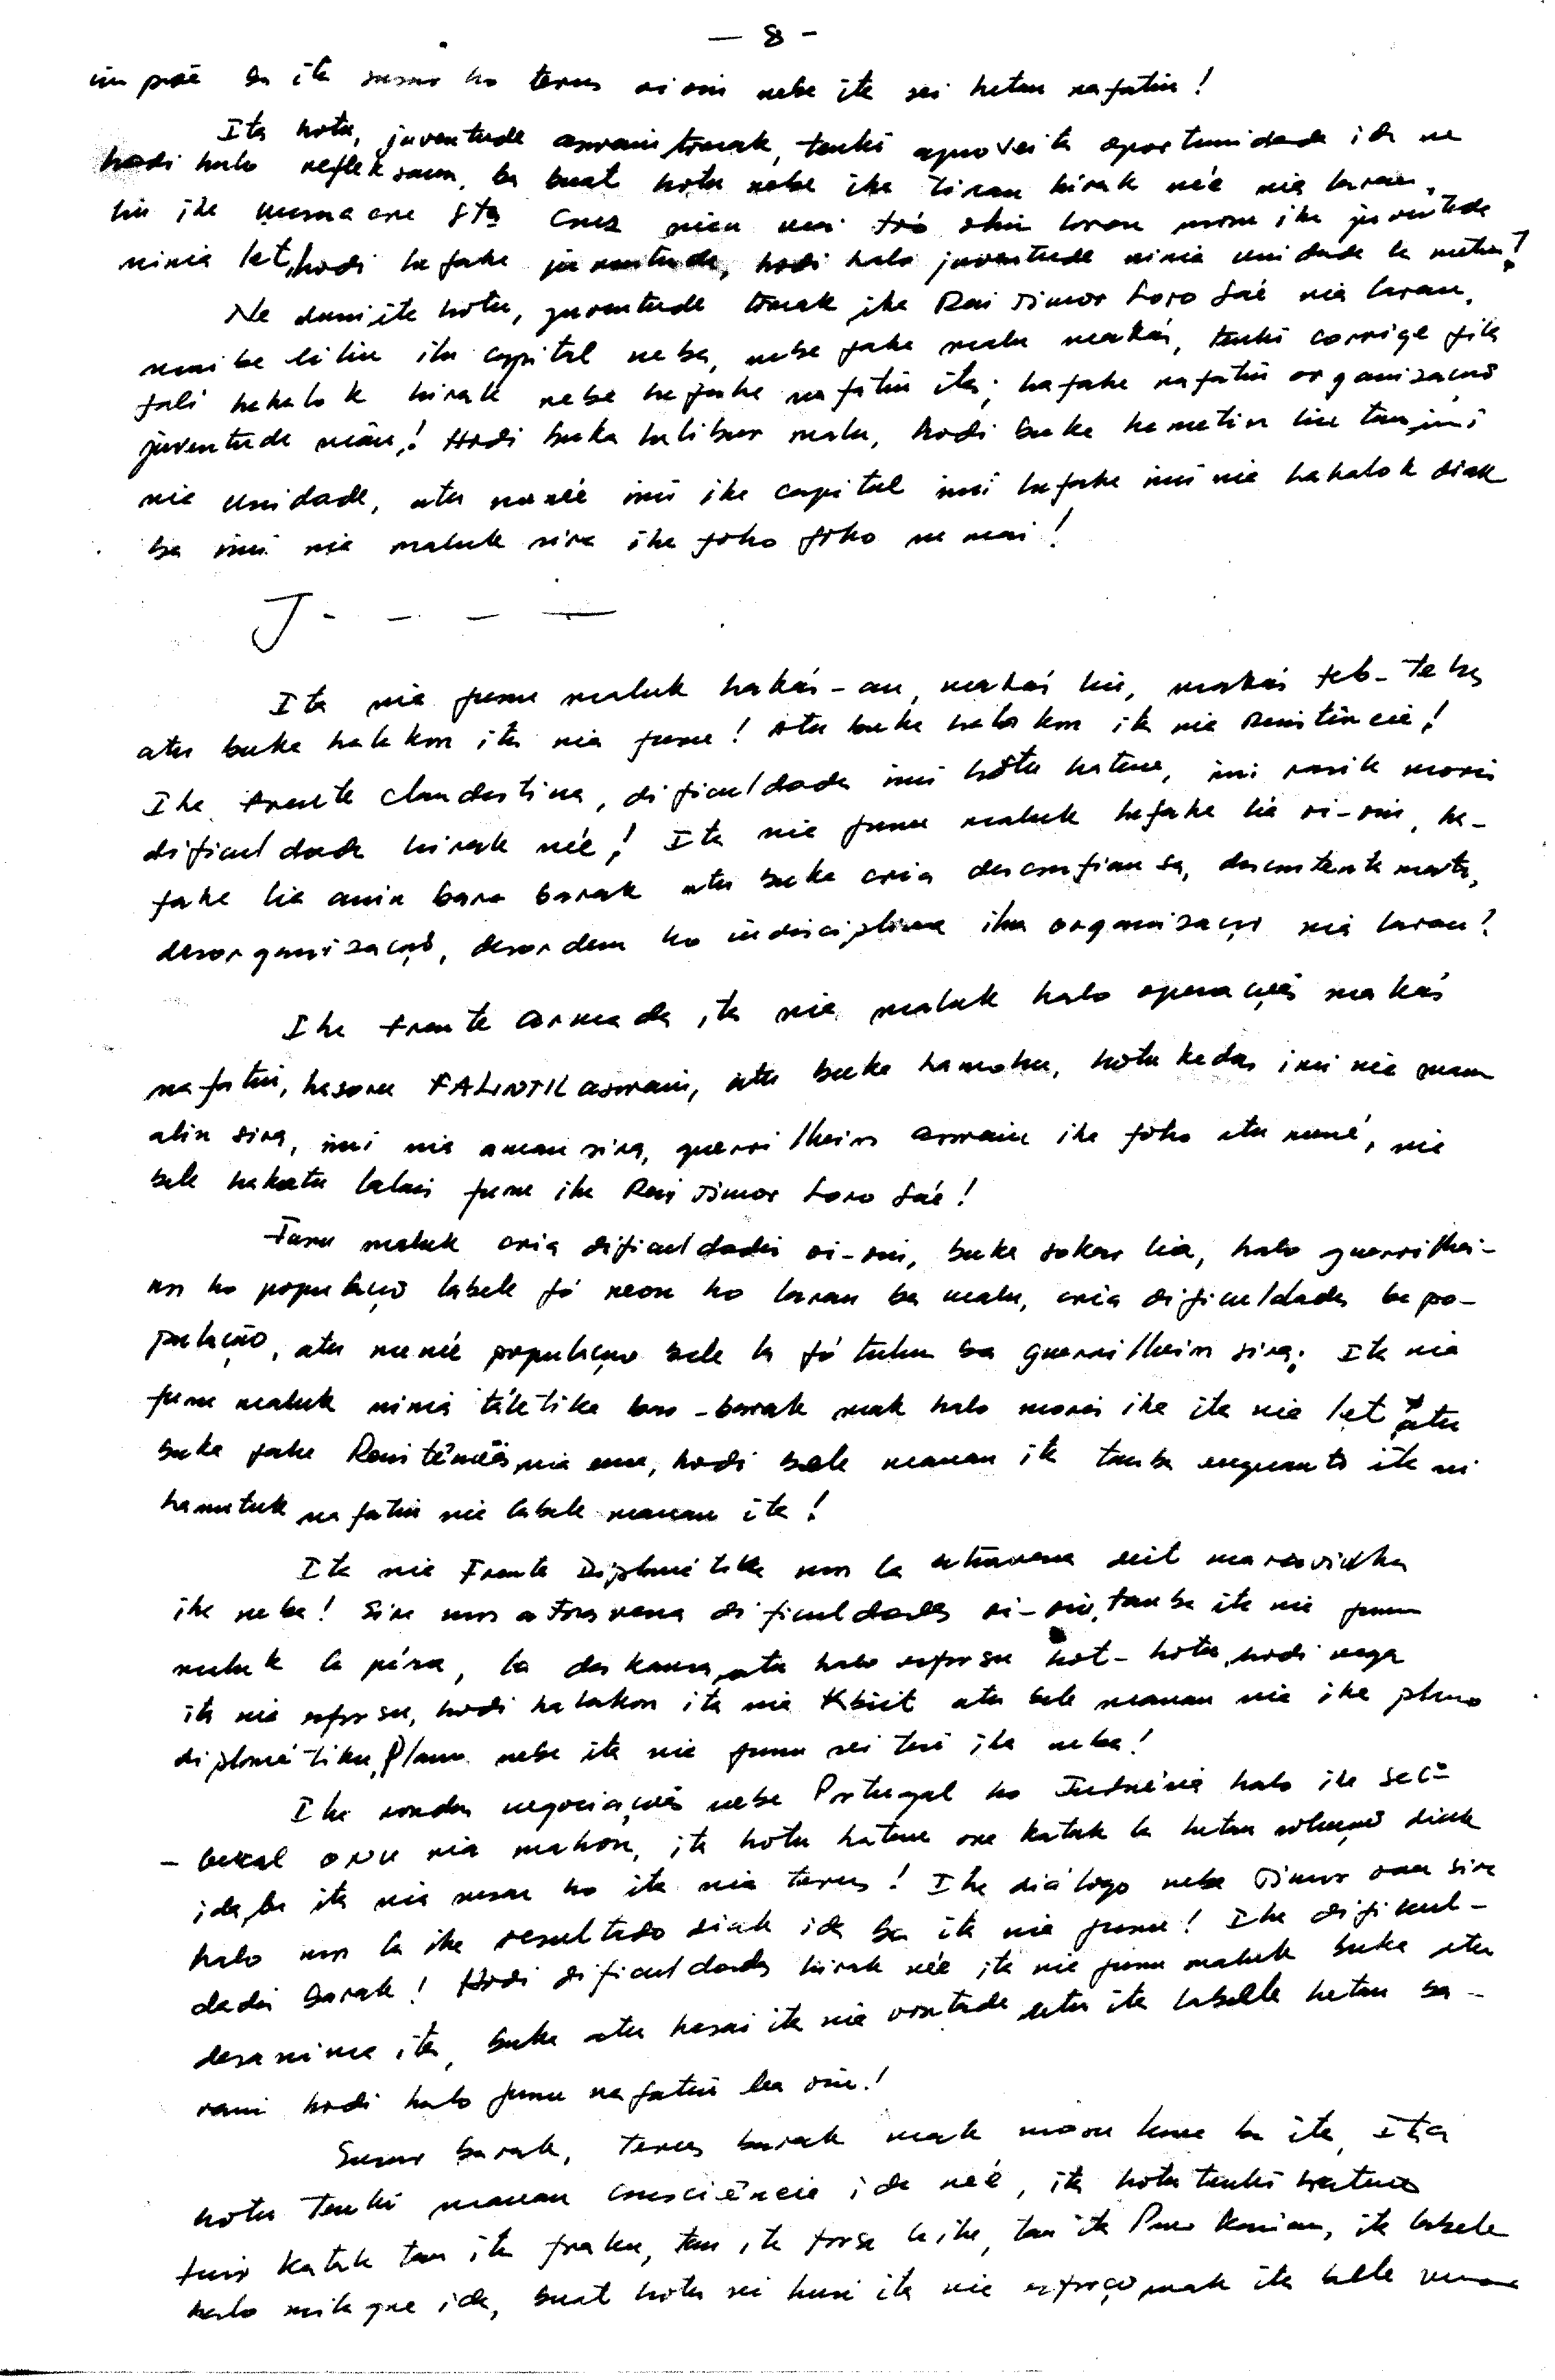 — 8 -
ita susar ho terus oi oin nebe ita sei hetan nafatin!
Ita hotu, juventude asswain tomak, tenki aproveita oportunidade ida ne
hodi halo refleksaun, ba buat hotu nebe iha tinan hirak né'e nia laran,
iha Sta Cruz mai tó ohin loron mosu iha juventude
ninia let, hodi hafahe juventude, hodi halo juventude ninia unidade la metin?
Ne duni ita hotu, juventude tomak iha Rai Timor Loro Sa'e nia laran,
maibe liliu iha capital neba, nebe fahe malu makás, tenki corrige fila
fali hahalok hirak nebe hafahe nafatin ita; hafahe nafatin organização
juventude nian! Hodi buka halibur malu, hodi buka hametin liu tan imi
nia unidade, atu nune'é imi iha capital imi hafahe imi nia hahalok diak
ba imi nia maluk sira iha foho foho ne mai!
J - - - —
Ita nia funu maluk hakás-an, makás liu, makás teb-tebes
atu buka halakon ita nia funu! Atu buka halakon ita nia Resistência!
Iha Frente Clandestina, dificuldades imi hotu hatene, imi rasik moris
dificuldade hirak né'e! Ita nia funu maluk hafahe lia oi-oin, ha-
fahe lia anin bara barak atu buka cria desconfiansa, descontentamento,
desorganização, desordem ho indisciplina iha organização nia laran!
Iha Frente Armada, ita nia maluk halo operações makás
nafatin, hasoru FALINTIL asswain, atu buka hamohu, hotu kedas imi nia maun
alin sira, imi nia aman sira, guerrilheiros asswain iha foho atu nuné, nia
bele hakotu lalais funu iha Rai Timor Loro Sa'e!
Funu maluk cria dificuldades oi-oin, buka sokar lia, halo guerrilhei-
ros ho população labele fó neon ho laran ba malu, cria dificuldades ba po-
pulação, atu nuné'e população bele la fó tulun ba guerrilheiros sira; Ita nia
funu maluk ninia táktika bara-barak mak halo moris iha ita nia let atu
buka fahe Resistência nia ema, hodi bele manan ita tamba enquanto ita sei
hamutuk nafatin nia labele manan ita!
Ita nia Frente Diplomátika mos la atravessa deit maravilha
iha neba! Sira mos atravessa dificuldades oi-oin, tamba ita nia funu
maluk la pára, la deskansa, atu halo esforsu hot-hotu, hodi nega
ita nia esforsu, hodi halakon ita nia Kbiit atu bele manan nia iha plano
diplomátiku, Plano nebe ita nia funu sei tesi iha neba!
Iha rondas negociações nebe Portugal ho Indonésia halo iha Sec-
- Geral ONU nia mahon, ita hotu hatene one katak la hetan solução diak
ida, ba ita nia susar ho ita nia terus! Iha diálogo nebe Timor oan sira
halo mos la iha resultado diak ida ba ita nia funu! Iha dificul-
dades barak! Hodi dificuldades hirak né'e ita nia funu maluk buka atu
desanima ita, buka atu hasai ita nia vontade, atu ita labele hetan ba-
rani hodi halo funu nafatin ba oin!
Susar barak, terus barak mak mosu ba ita, ita
hotu tenki manan consciência ida né'e, ita hotu tenki hatene
katak tan ita fraku, tan ita forsa la iha, tan ita Povo ita labele
halo milagre ida, buat hotu sei husi ita nia esforço, mak ita bele